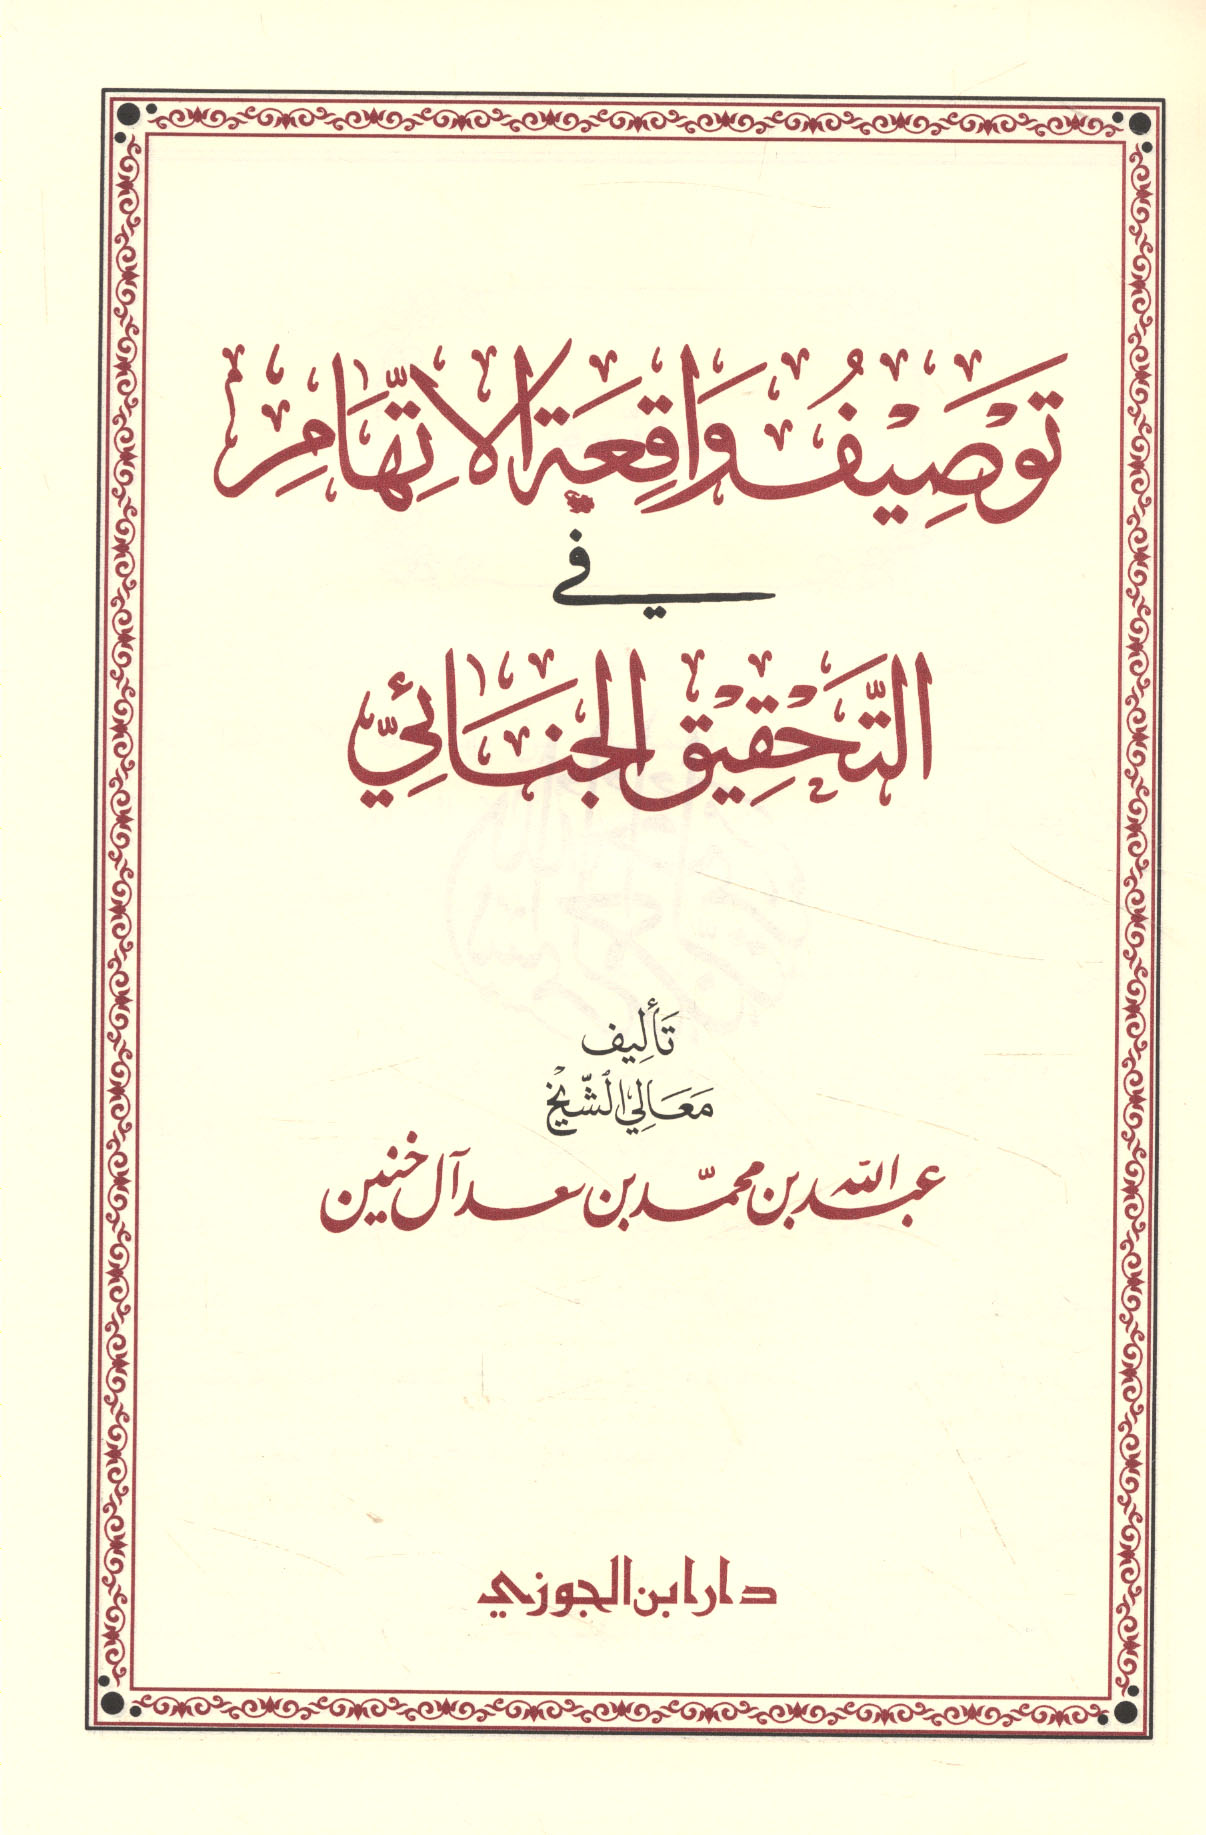 تَوْصِيفُ وَاقِعَةِ الاتِّهَامِ
في
التَّحْقِيقِ الجِنَائِيِّ
تَأليف
مَعَالِي الشَّيْخ
عبد الله بن محمّد بن سعد آل خنين
دار ابن الجوزي